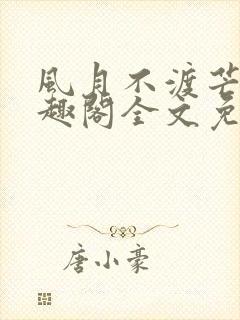 風月不渡芒
趣閣全文免
唐小豪